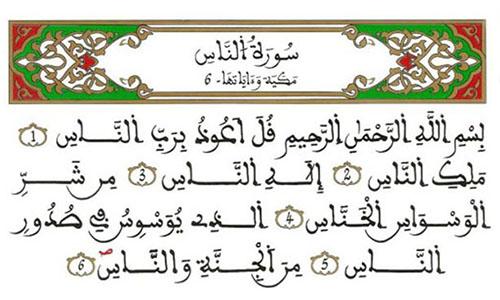 سُورَةُ النَّاسِ
مَكِّيَّة وَءَايَاتُهَا - 6
بِسْمِ اللَّهِ الرَّحْمَٰنِ الرَّحِيمِ قُلَ اَعُوذُ بِرَبِّ النَّاسِ 1
مَلِكِ النَّاسِ 2 إِلَٰهِ النَّاسِ 3 مِن شَرِّ
الْوَسْوَاسِ الْخَنَّاسِ 4 الذِے يُوَسْوِسُ فِے صُدُورِ
النَّاسِ 5 مِنَ الْجِنَّةِ وَالنَّاسِ ص 6